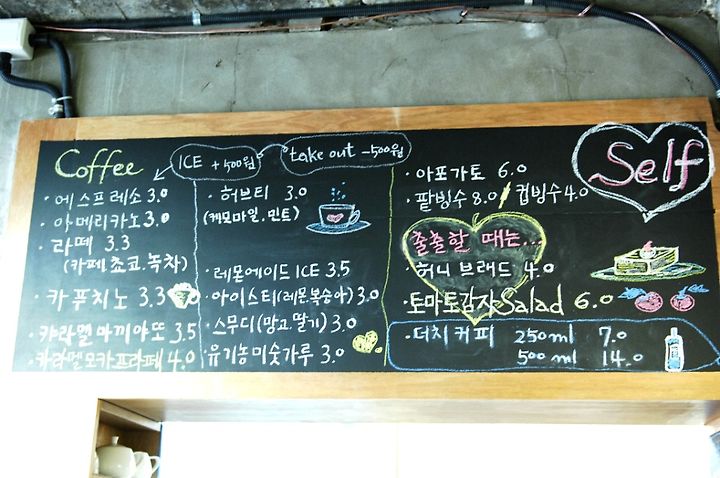 Coffee
ICE +500원
take out -500원
· 에스프레소 3.0
· 아메리카노 3.0
· 라떼 3.3
(카페.쵸코.녹차)
· 카푸치노 3.3
· 캬라멜마끼아또 3.5
· 카라멜모카프라페 4.0
· 허브티 3.0
(캐모마일.민트)
· 레몬에이드 ICE 3.5
· 아이스티(레몬복숭아) 3.0
· 스무디(망고.딸기) 3.0
· 유기농미숫가루 3.0
Self
· 아포가토 6.0
· 팥빙수 8.0 / 컵빙수 4.0
출출할 때는...
· 허니 브래드 4.0
· 토마토감자Salad 6.0
· 더치커피 250ml 7.0
500ml 14.0